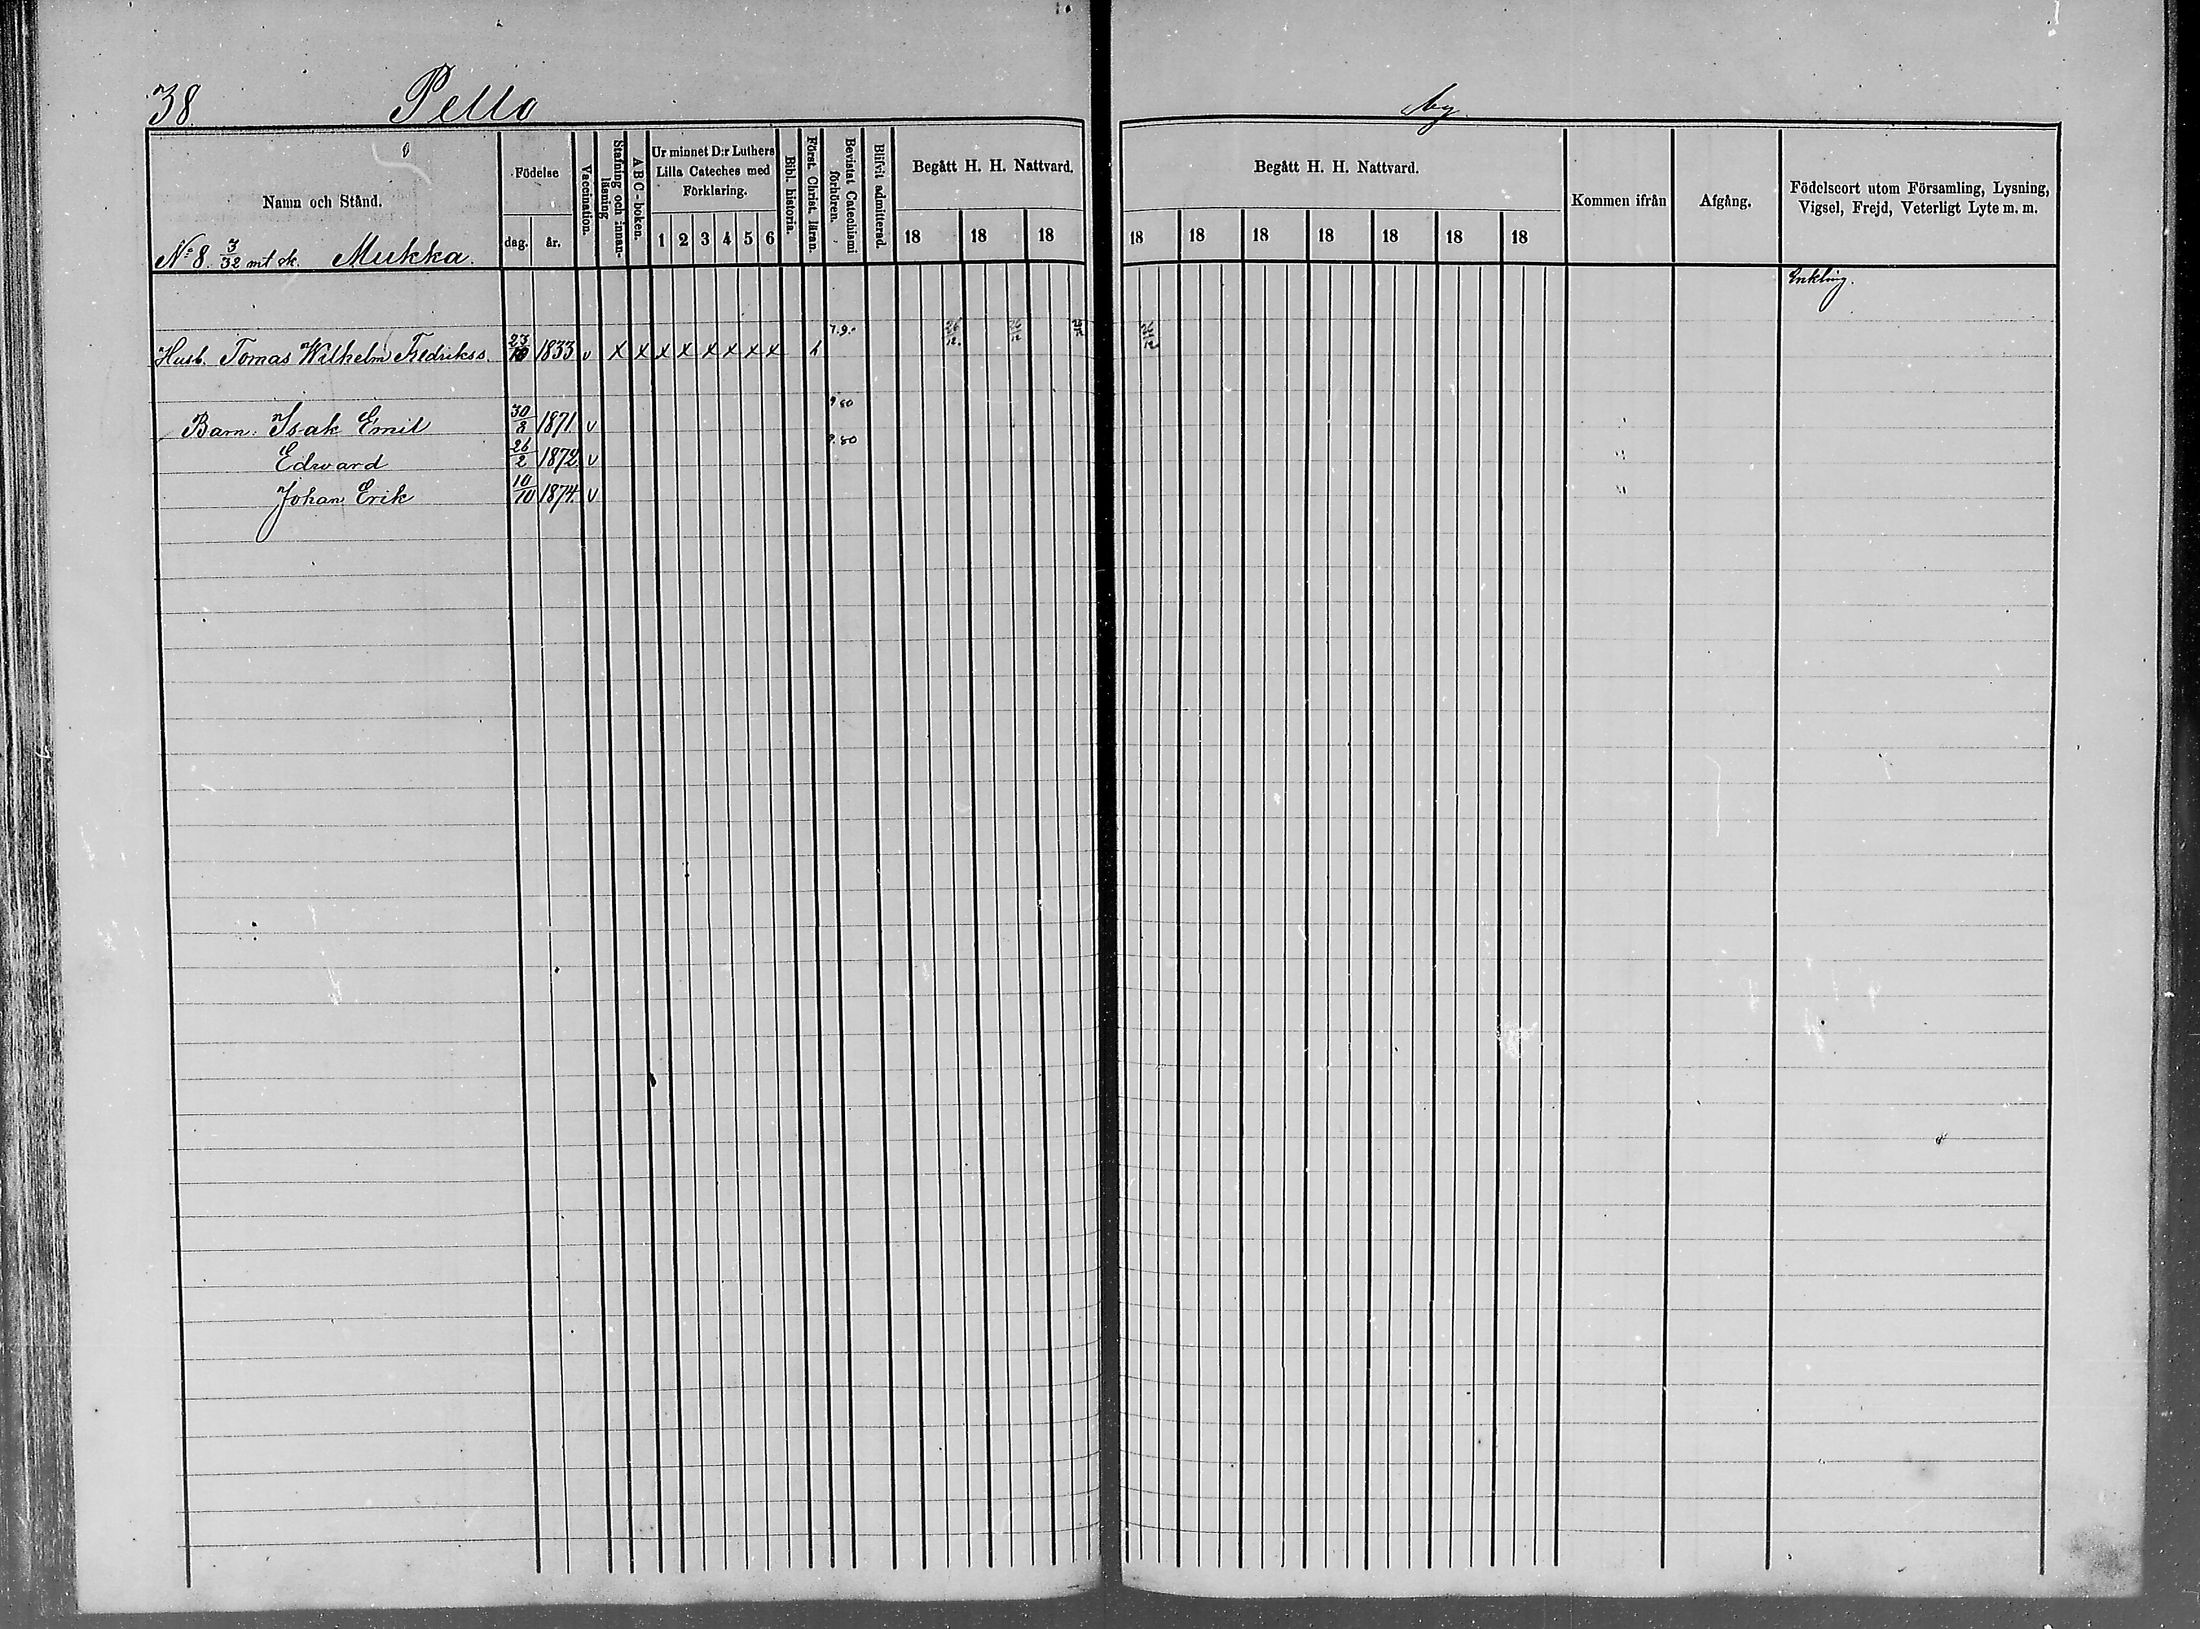 38. Pello by.
Namn och Stånd.
Födelse
dag. år.
Vaccination.
Stafning och innanläsning
ABC-boken.
Ur minnet D:r Luthers Lilla Cateches med Förklaring.
1 2 3 4 5 6
Bibl. historia.
Först. Christ. läran.
Bevistat Catechismi förhören.
Blifvit admitterad.
Begått H. H. Nattvard.
18 18 18
Begått H. H. Nattvard.
18 18 18 18 18 18 18
Kommen ifrån
Afgång.
Födelseort utom Församling, Lysning, Vigsel, Frejd, Veterligt Lyte m. m.
No 8. 3/32 mt sk. Mukka.
Enkling.
Husb. Tomas Wilhelm Fredrikss. 23/10 1833 v x x x x x x x x h 7.9. 26/12
Barn. Isak Emil 30/8 1871 v 9 80
Edward 26/2 1872 v 9.80
Johan Erik 10/10 1874 v